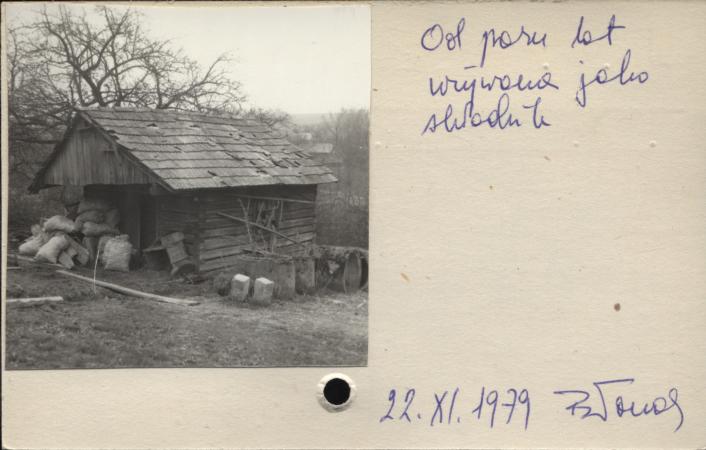 Od paru lat
używana jako
składzik
22.XI.1979